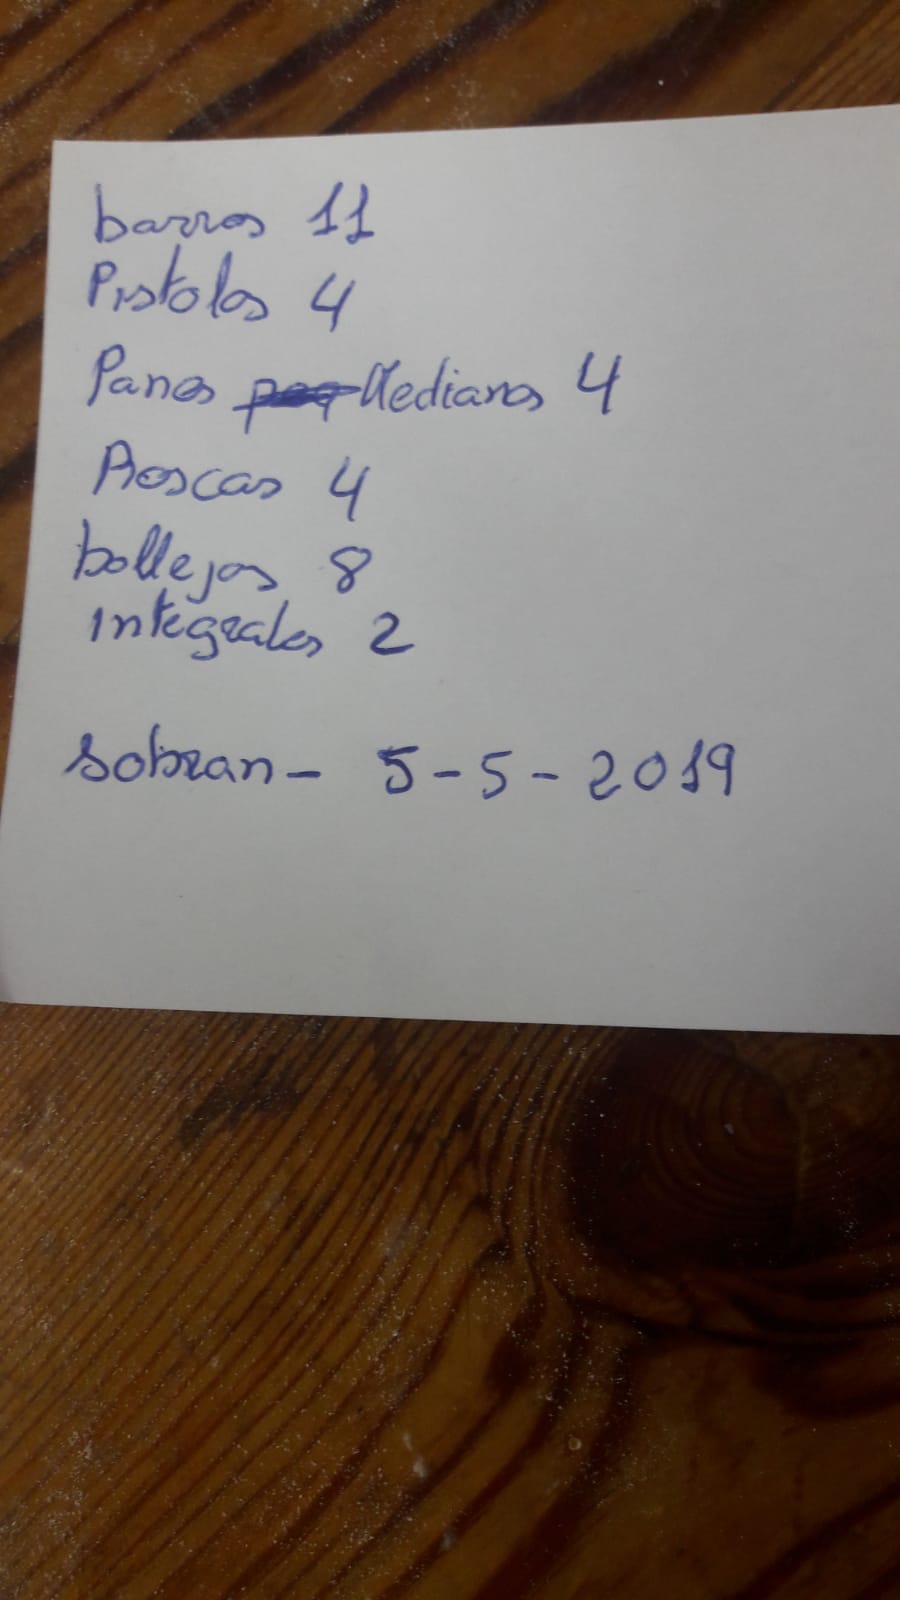 barras 11
Pistolas 4
Panes Medianos 4
Roscas 4
bollejos 8
integrales 2
sobran - 5-5-2019